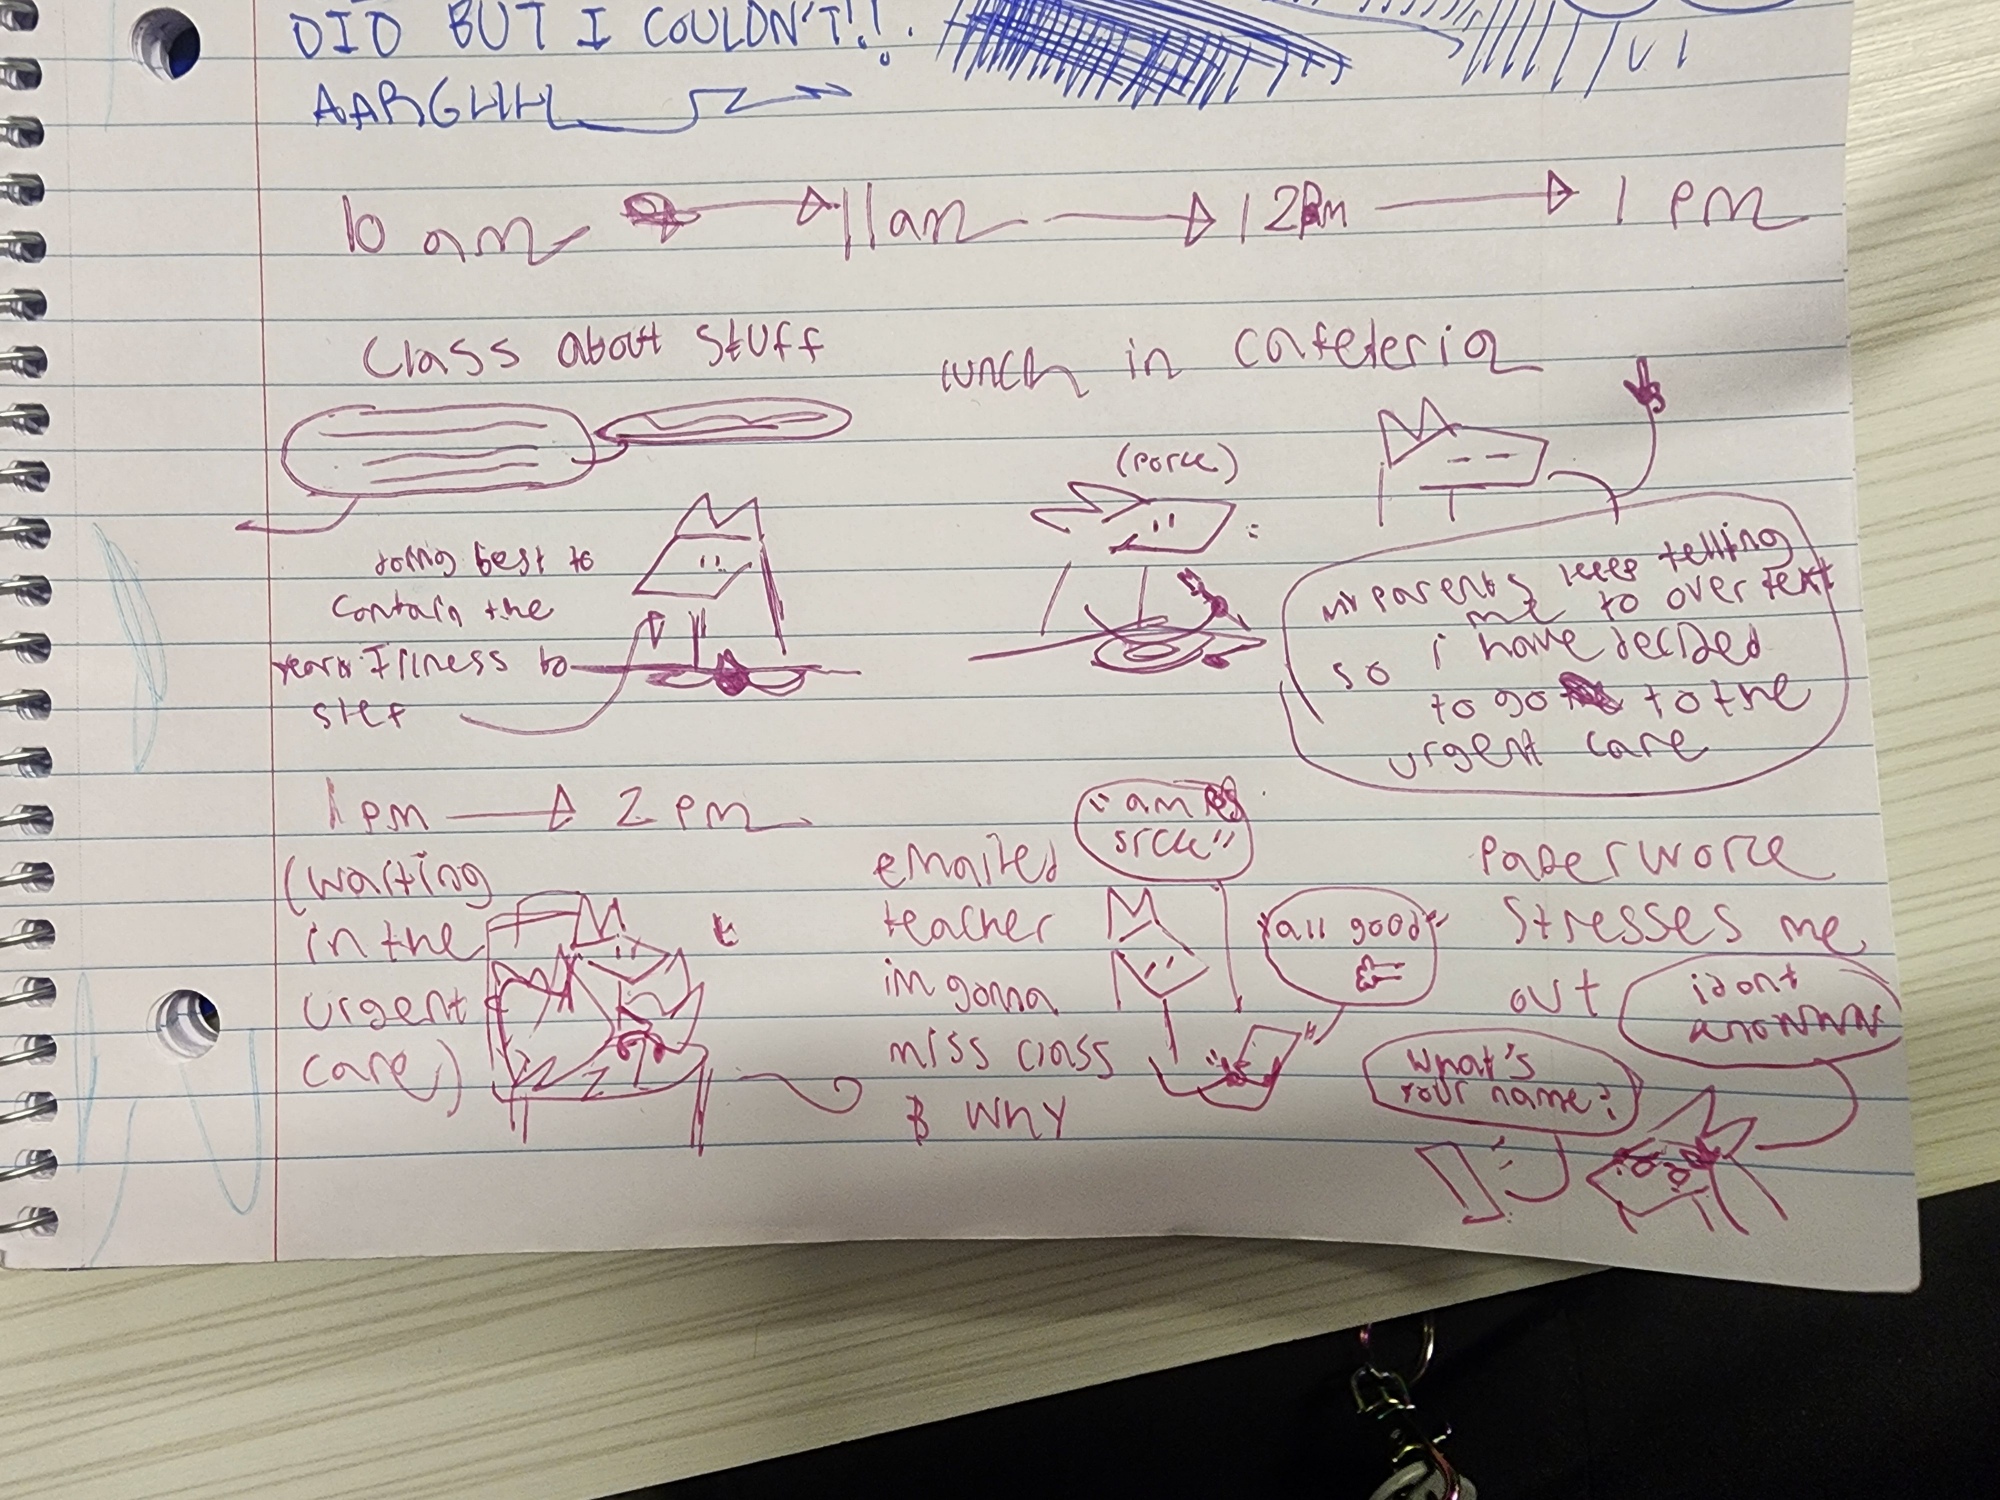 DID BUT I COULDN'T!!
AARGHHH
10 am 11am 12pm 1 pm
Class about stuff
lunch in cafeteria
(Porce)
doing best to
contain the
illness to
my parents keep telling
me to over text
so i have decided
to go to the
urgent care
1 pm 2 pm
(waiting
in the
urgent
care)
emailed
teacher
im gonna
miss class
& why
"am
sick"
"all good"
paperwork
stresses me
out
what's
your name?
i dont
knowwww